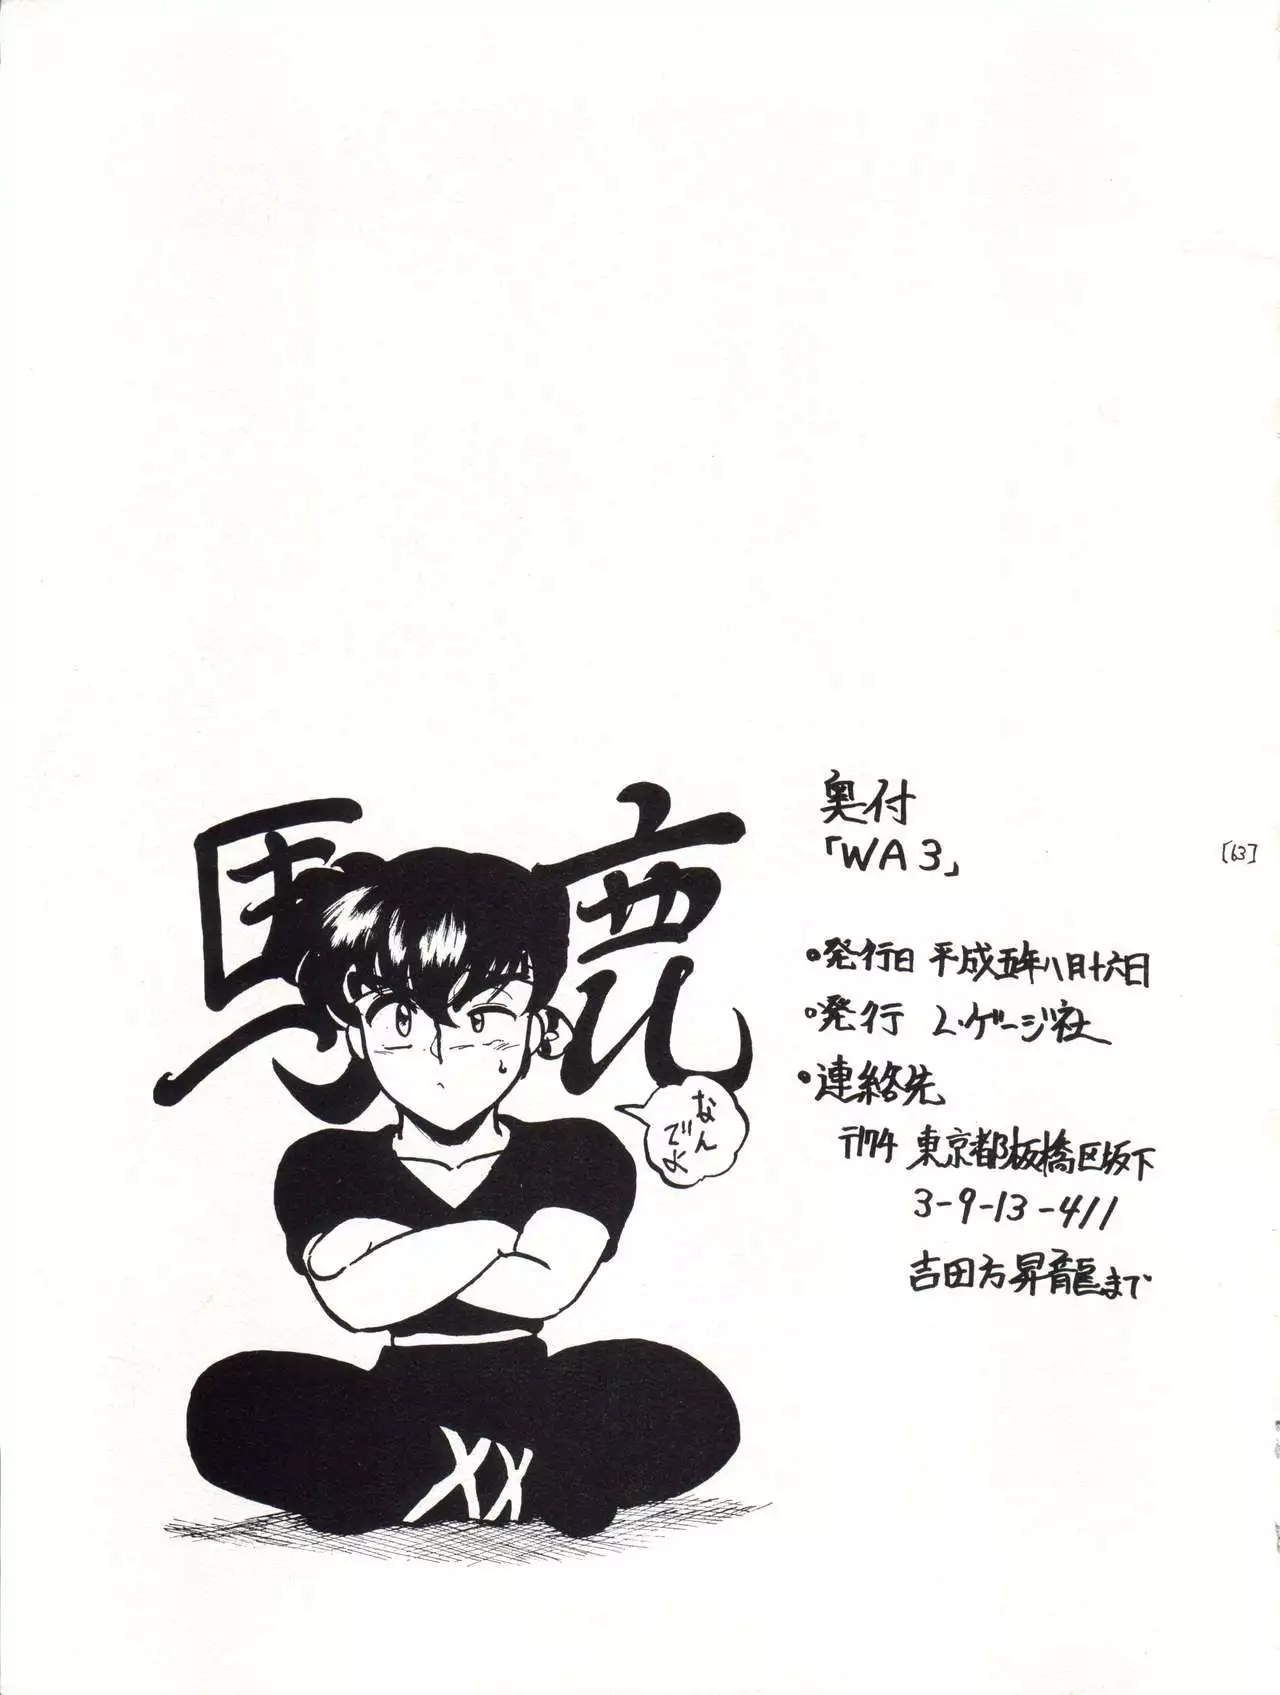 馬鹿
なん
でよ
奥付
「WA3」
[63]
•発行日 平成五年八月十六日
•発行 L.ゲージ社
•連絡先
〒174 東京都板橋区坂下
3-9-13-411
吉田方昇龍まで